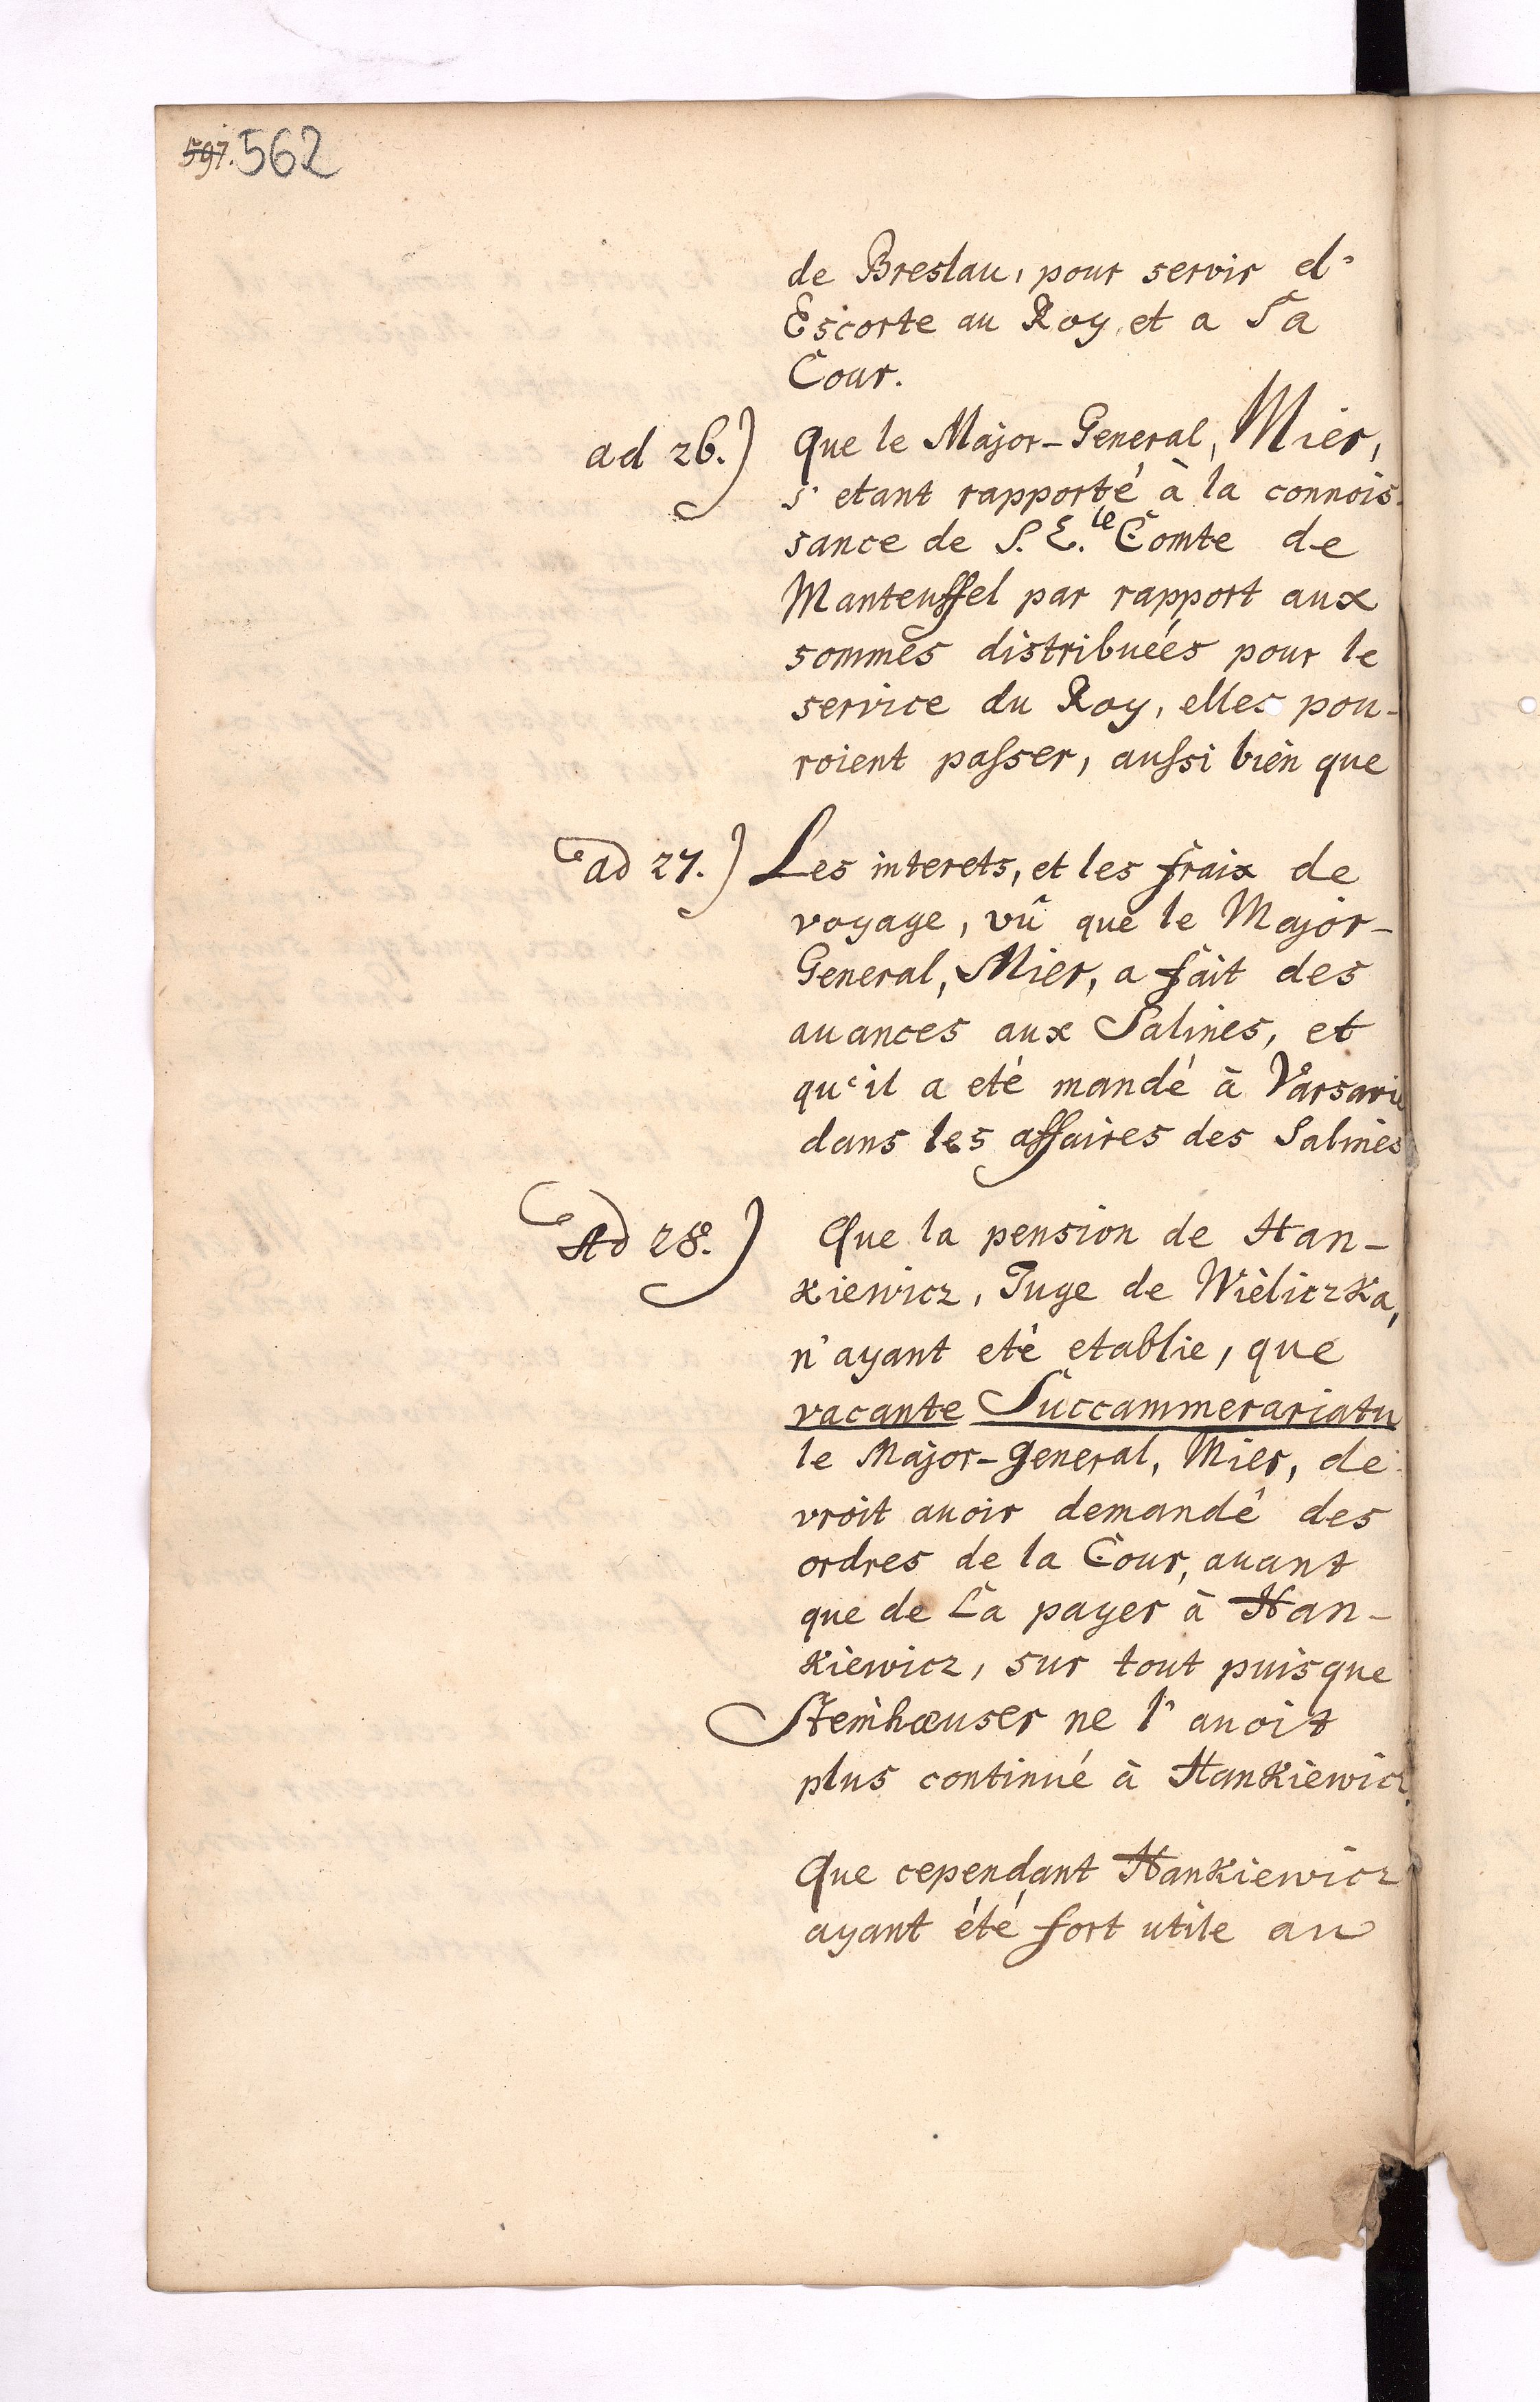 597. 562
de Breslau, pour servir d'
Escorte au Roy, et a Sa
Cour.
ad 26.) Que le Major-General, Mier,
s' etant rapporté à la connois-
sance de S. E. le Comte de
Manteuffel par rapport aux
sommes distribuées pour le
service du Roy, elles pou-
roient passer, aussi bien que
ad 27.) Les interets, et les fraix de
voyage, vû que le Major-
General, Mier, a fait des
auances aux Salines, et
qu'il a eté mandé à Varsavie
dans les affaires des Salines
Ad 28.) Que la pension de Han-
kiewicz, Juge de Wieliczka,
n'ayant eté etablie, que
vacante Succammerariatu
le Major-general, Mier, de-
vroit auoir demandé des
ordres de la Cour, auant
que de La payer à Han-
kiewicz, sur tout puisque
Steinhæuser ne l' auoit
plus continué à Hankiewicz.
Que cependant Hankiewicz
ayant été fort utile au